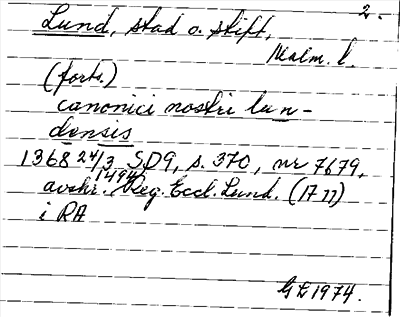 2.
Lund, stad o. stift,
Malm. l.
(forts.)
canonici nostri lun-
densis
1368 24/3 SD9, s. 370, nr 7679,
avskr. 1494 Reg. Eccl. Lund. (
i RA
GL 1974.